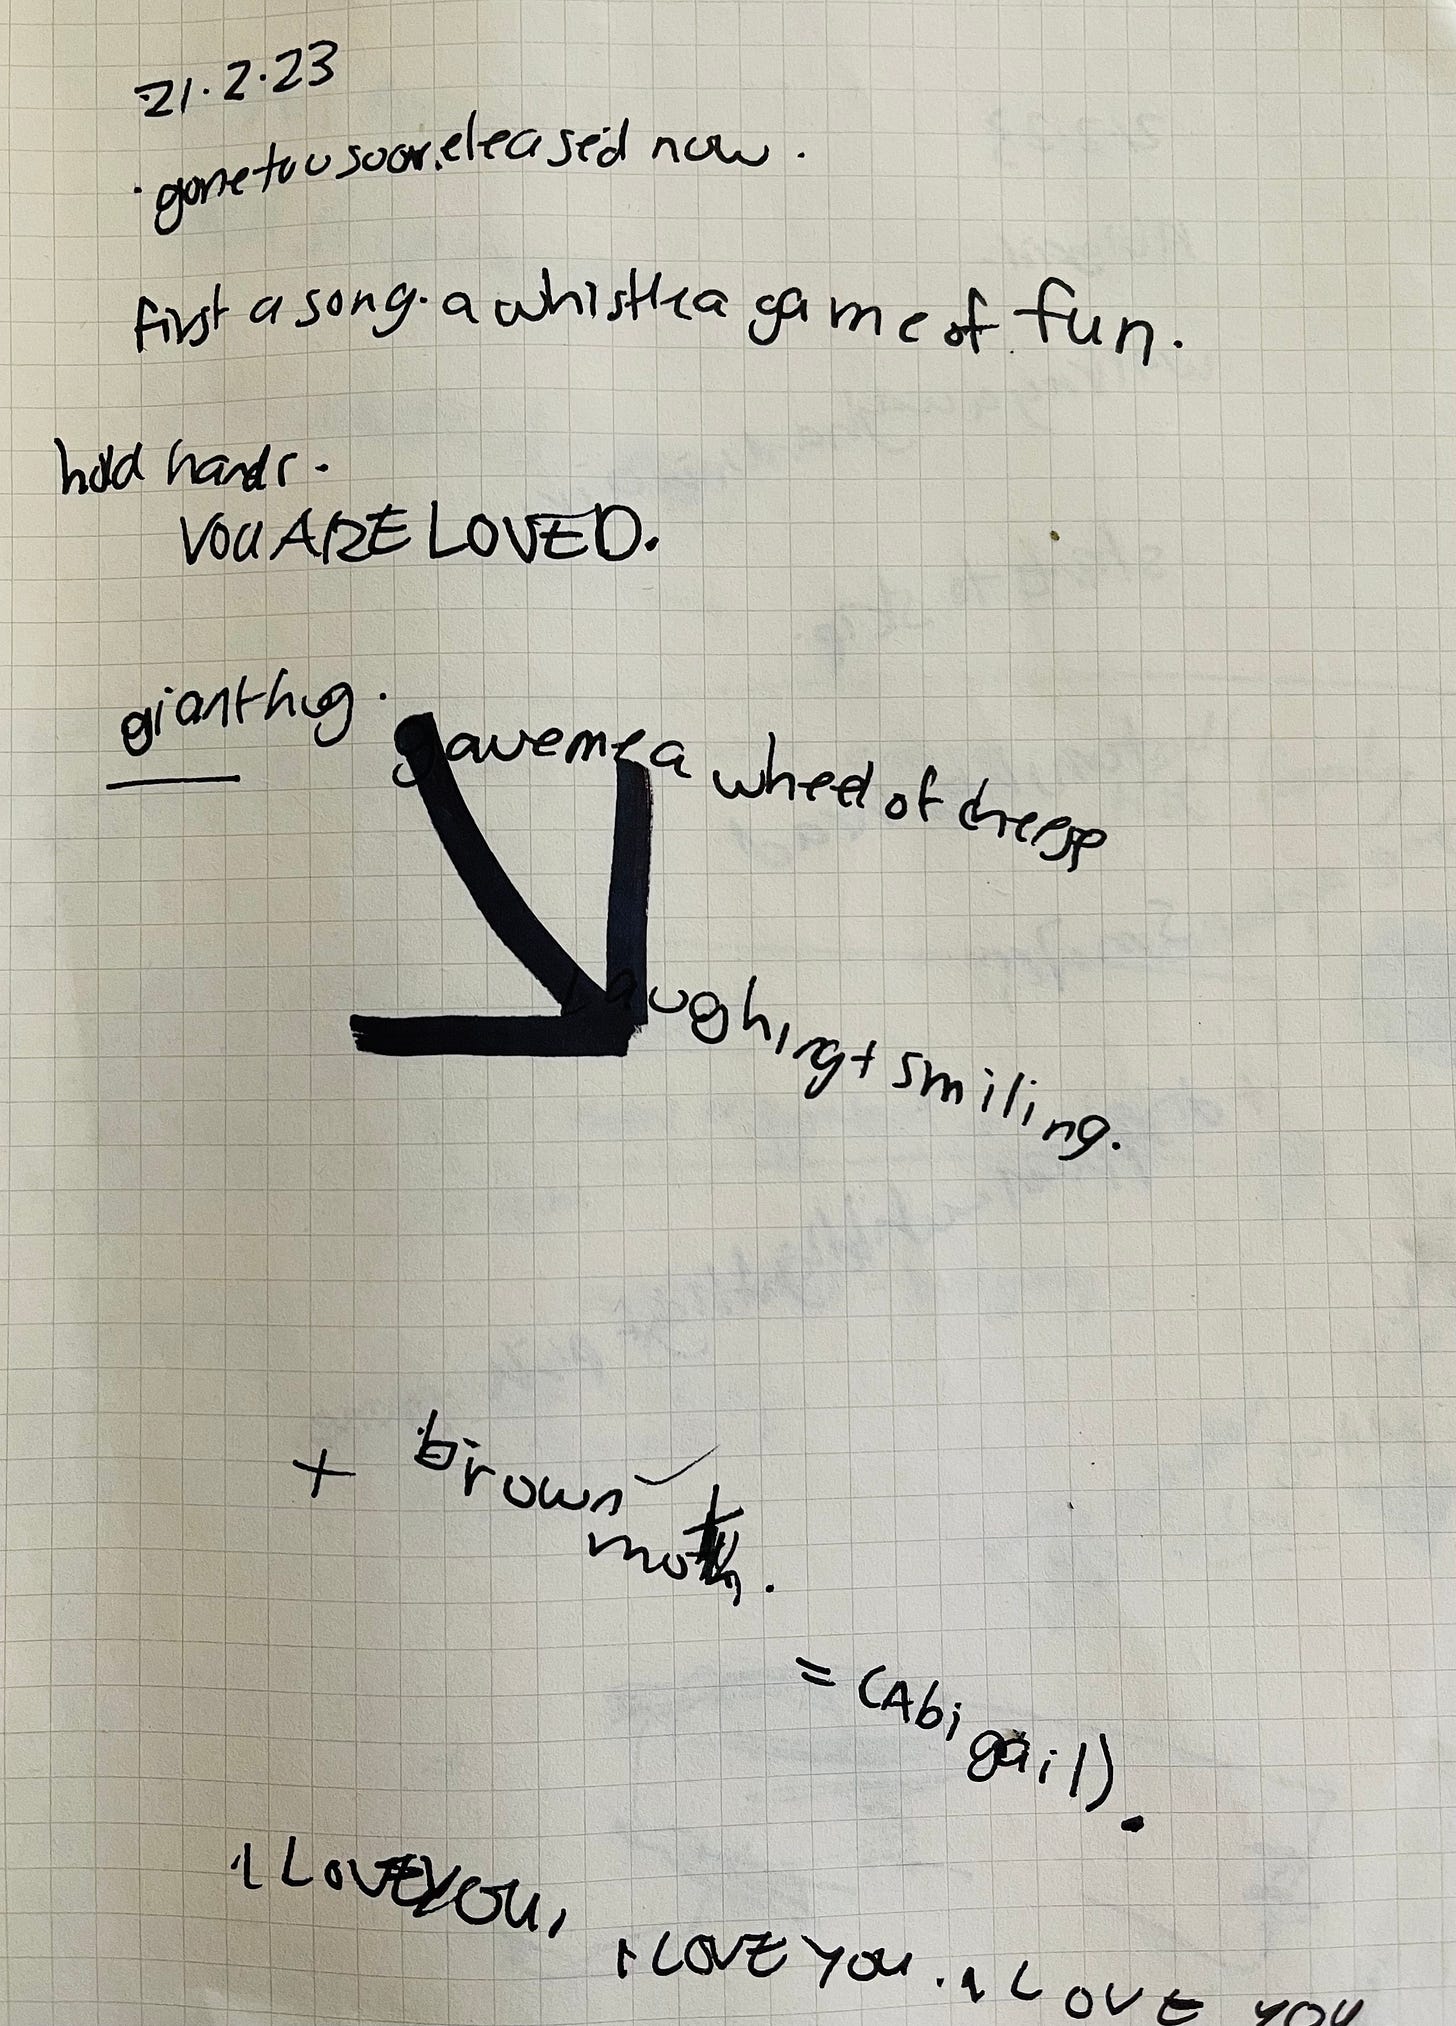 21.2.23
. gone too soon.released now .
first a song. a whistle a game of fun.
hold hands.
YOU ARE LOVED.
giant hug.
gave me a wheel of cheese
Laughing + smiling.
+ brown
moth.
= (Abigail).
I LOVE YOU,
I LOVE YOU. I LOVE YOU